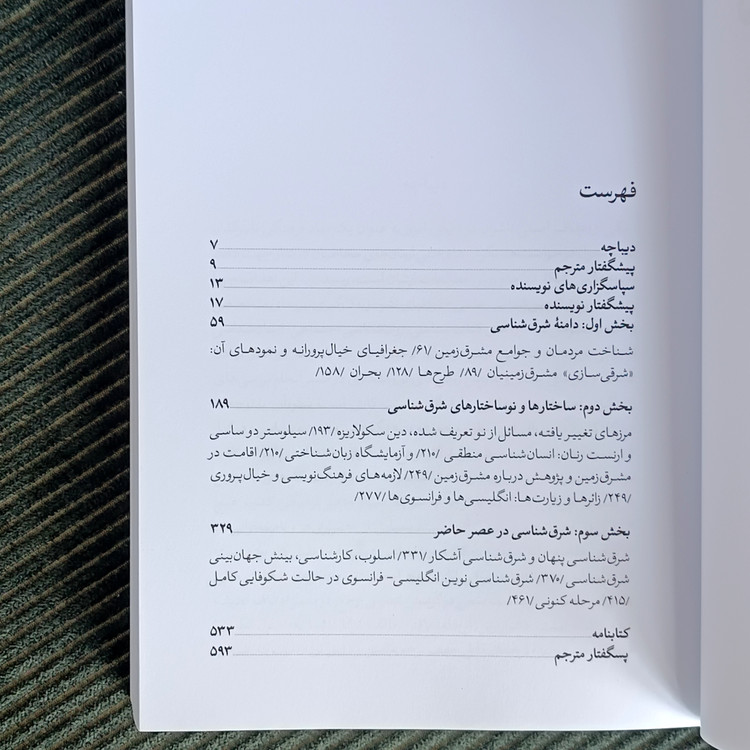 فهرست
دیباچه ۷
پیشگفتار مترجم ۹
سپاسگزاری‌های نویسنده ۱۳
پیشگفتار نویسنده ۱۷
بخش اول: دامنهٔ شرق‌شناسی ۵۹
شناخت مردمان و جوامع مشرق‌زمین /۶۱/ جغرافیای خیال‌پرورانه و نمودهای آن:
«شرقی‌سازی» مشرق‌زمینیان /۸۹/ طرح‌ها /۱۲۸/ بحران /۱۵۸/
بخش دوم: ساختارها و نوساختارهای شرق‌شناسی ۱۸۹
مرزهای تغییر یافته، مسائل از نو تعریف شده، دین سکولاریزه /۱۹۳/ سیلوستر دو ساسی
و ارنست رنان: انسان‌شناسی منطقی /۲۱۰/ و آزمایشگاه زبان‌شناختی /۲۱۰/ اقامت در
مشرق‌زمین و پژوهش درباره مشرق‌زمین /۲۴۹/ لازمه‌های فرهنگ‌نویسی و خیال‌پروری
/۲۴۹/ زائرها و زیارت‌ها: انگلیسی‌ها و فرانسوی‌ها /۲۷۷/
بخش سوم: شرق‌شناسی در عصر حاضر ۳۲۹
شرق‌شناسی پنهان و شرق‌شناسی آشکار /۳۳۱/ اسلوب، کارشناسی، بینش جهان‌بینی
شرق‌شناسی /۳۷۰/ شرق‌شناسی نوین انگلیسی- فرانسوی در حالت شکوفایی کامل
/۴۱۵/ مرحله کنونی /۴۶۱/
کتابنامه ۵۳۳
پسگفتار مترجم ۵۹۳